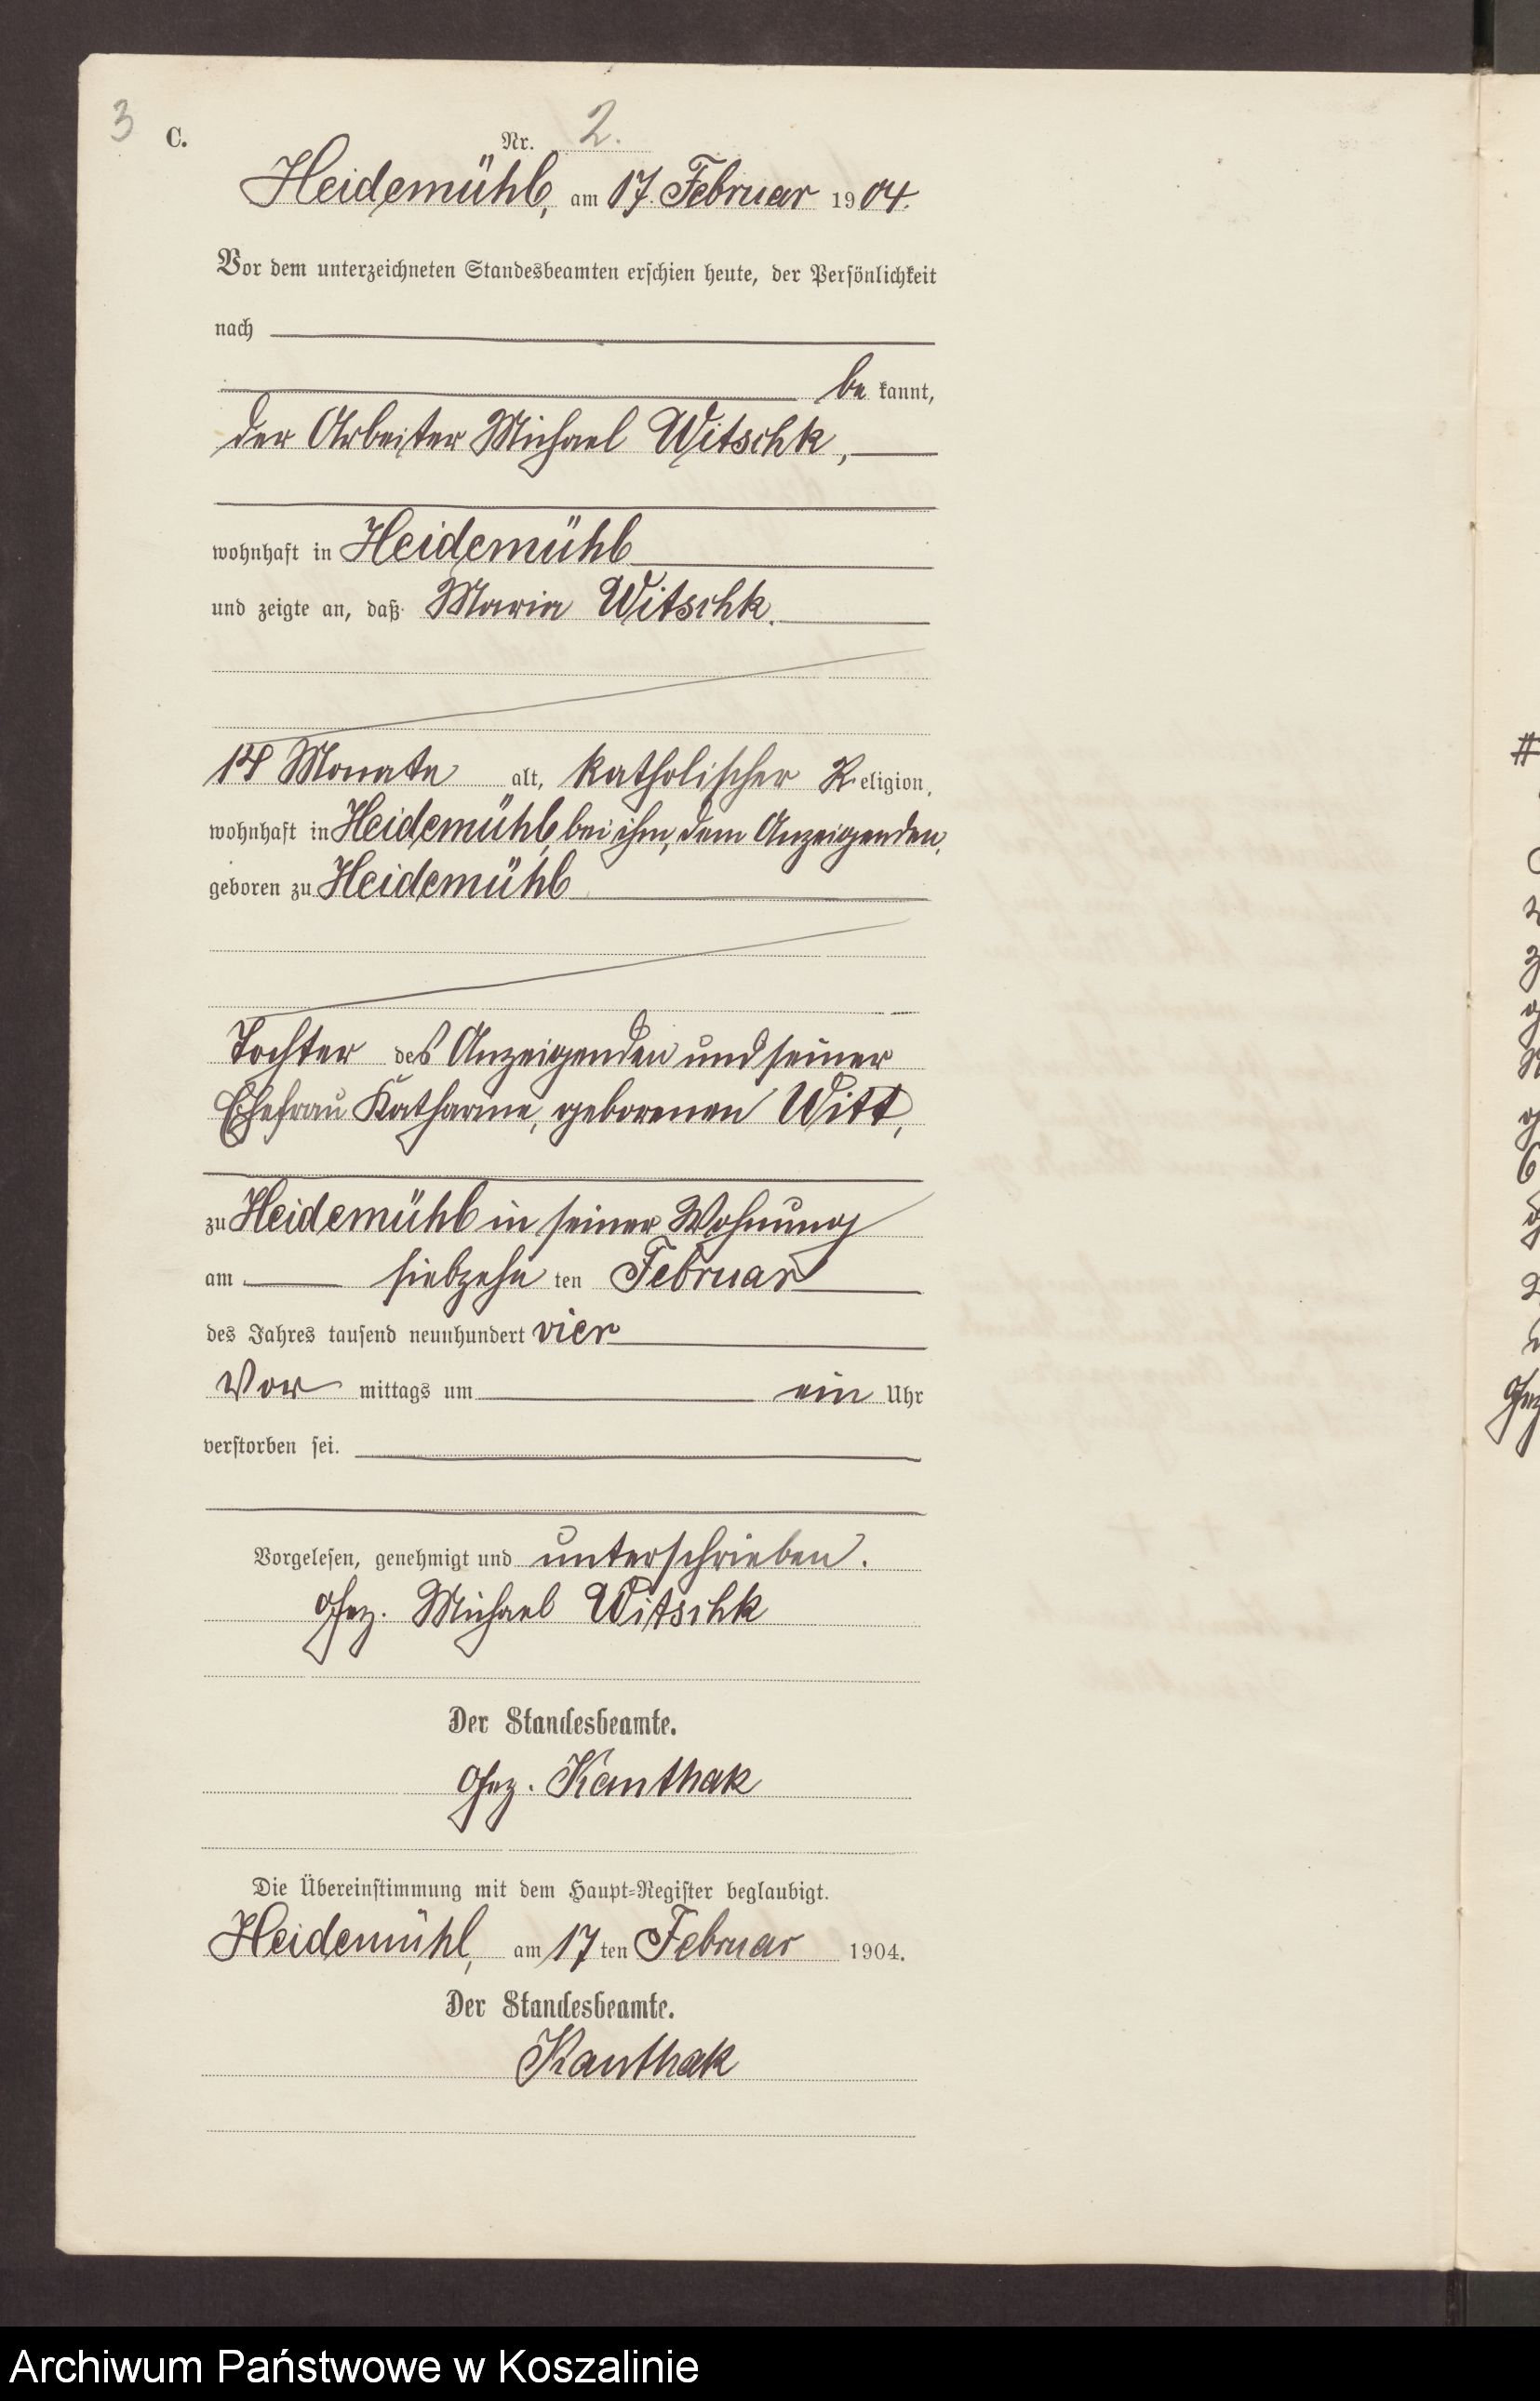 3
C.
Nr. 2.
Heidemühl, am 17. Februar 1904.
Vor dem unterzeichneten Standesbeamten erschien heute, der Persönlichkeit
nach
be kannt,
der Arbeiter Michael Witschk,
wohnhaft in Heidemühl
und zeigte an, daß Maria Witschk.
Monate alt, katholischer Religion,
wohnhaft in Heidemühl, bei ihm, dem Anzeigenden,
geboren zu Heidemühl
Tochter des Anzeigenden und seiner
Ehefrau Katharine, geborenen Witt,
zu Heidemühl in seiner Wohnung
am siebzehn ten Februar
des Jahres tausend neunhundert vier
Vor mittags um ein Uhr
verstorben sei.
Vorgelesen, genehmigt und unterschrieben.
Gez. Michael Witschk
Der Standesbeamte.
Gez. Kanthak
Die Übereinstimmung mit dem Haupt-Register beglaubigt.
Heidemühl, am 17 ten Februar 1904.
Der Standesbeamte.
Kanthak
Archiwum Państwowe w Koszalinie